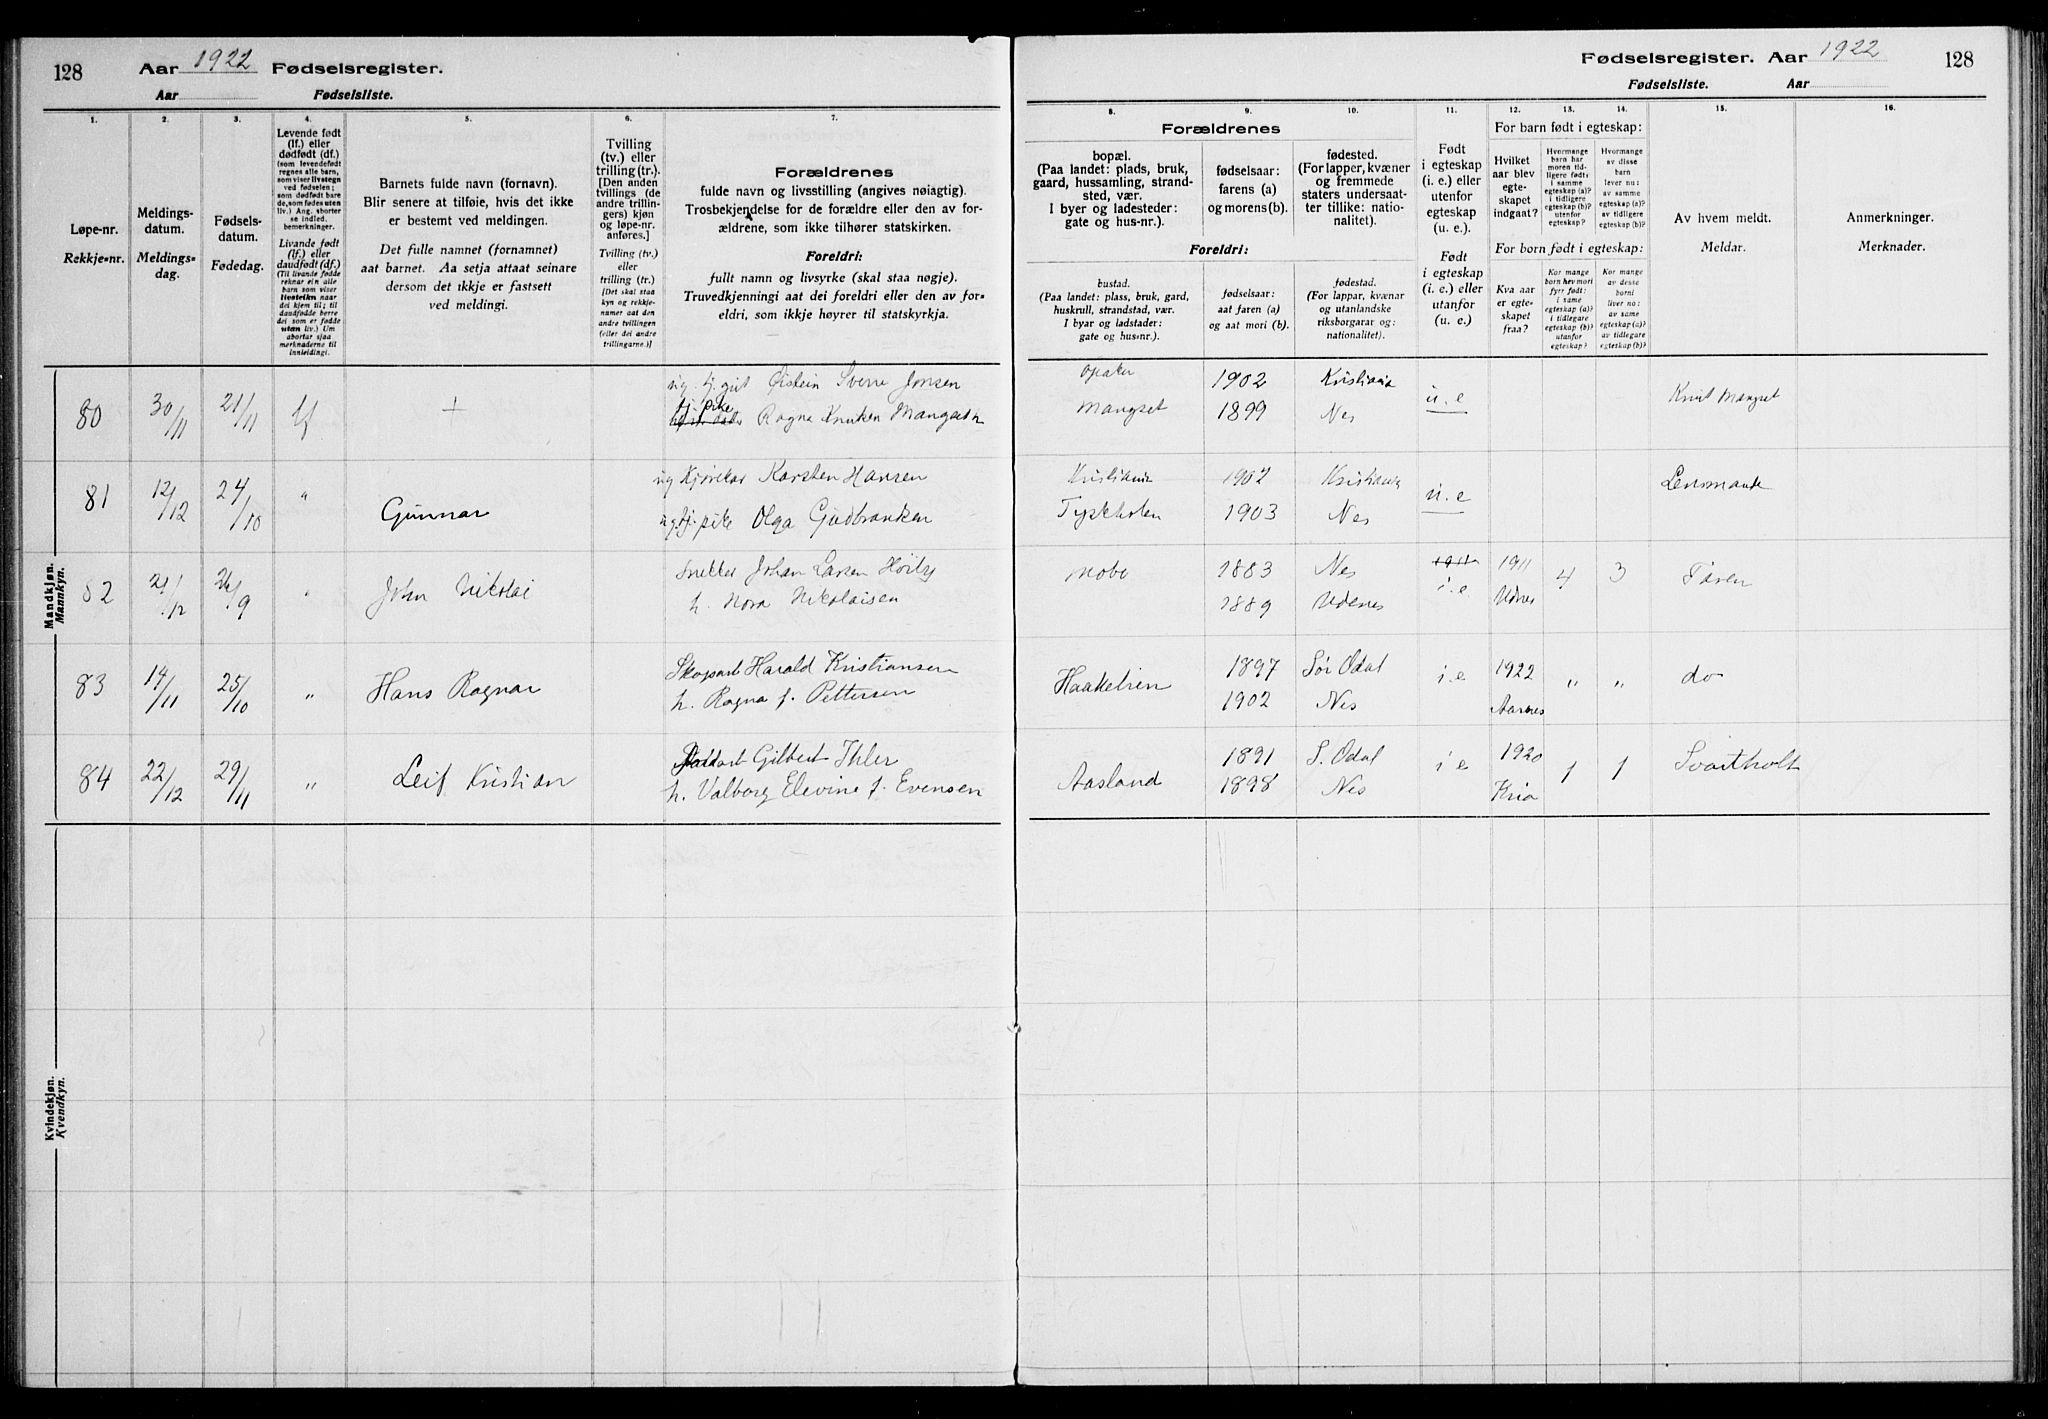 128 Aar 1922 Fødselsregister.
Aar Fødselsliste.
Fødselsregister. Aar 1922 128
Fødselsliste. Aar
1. 2. 3. 4. 5. 6. 7.
8. 9. 10. 11. 12. 13. 14. 15. 16.
Løpe-nr.
Rekkje-nr.
Meldings-
datum.
Meldings-
dag.
Fødsels-
datum.
Fødedag.
Levende født
(lf.) eller
dødfødt (df.)
(som levendefødt
regnes alle barn,
som viser livstegn
ved fødselen;
som dødfødt bare
de, som fødes uten
liv.) Ang. aborter
se indled.
bemerkninger.
Livande født
(lf.) eller
daudfødt (df.)
(Til livande fødde
reknar ein alle
barn som viser
livsteikn naar
dei kjem til; til
daudfødde berre
dei som er fødde
utan liv.) Um
abortar sjaa
merknaderne til
innleidingi.
Barnets fulde navn (fornavn).
Blir senere at tilføie, hvis det ikke
er bestemt ved meldingen.
Det fulle namnet (fornamnet)
aat barnet. Aa setja attaat seinare
dersom det ikkje er fastsett
ved meldingi.
Tvilling
(tv.) eller
trilling (tr.).
[Den anden
tvillings (de
andre trillin-
gers) kjøn
og løpe-nr.
anføres.]
Tvilling (tv.)
eller
trilling (tr.)
[Det skal staa
kyn og rekkje-
numer aat den
andre tvillingen
(eller dei andre
trillingarne.)]
Forældrenes
fulde navn og livsstilling (angives nøiagtig).
Trosbekjendelse for de forældre eller den av for-
ældrene, som ikke tilhører statskirken.
Foreldri:
fullt namn og livsyrke (skal staa nøgje).
Truvedkjenningi aat dei foreldri eller den av for-
eldri, som ikkje høyrer til statskyrkja.
Forældrenes
bopæl.
(Paa landet: plads, bruk,
gaard, hussamling, strand-
sted, vær.
I byer og ladesteder:
gate og hus-nr.).
fødselsaar:
farens (a)
og morens (b).
fødested.
(For lapper, kvæner
og fremmede
staters undersaat-
ter tillike: natio-
nalitet).
Foreldri:
bustad.
(Paa landet: plass, bruk, gard,
huskrull, strandstad, vær.
I byar og ladstader:
gate og hus-nr.).
fødselsaar:
aat faren (a)
og aat mori (b).
fødestad.
(For lappar, kvænar
og utanlandske
riksborgarar og:
nationalitet).
Født
i egteskap
(i. e.) eller
utenfor
egteskap
(u. e.).
Født
i egteskap
(i. e.) eller
utanfor
(u. e.).
For barn født i egteskap:
Hvilket
aar blev
egte-
skapet
indgaat?
Hvormange
barn har
moren tid-
ligere født:
i samme
egteskap (a)?
i tidligere
egteskap (b)?
utenfor
egteskap?
Hvormange
av disse
barn
lever nu:
av samme
egteskap (a)?
av tidligere
egteskap (b)?
For born født i egteskap:
Kva aar
er egte-
skapet
fraa?
Kor mange
born hev mori
fyrr født:
i same
egteskap (a)?
i tidlegare
egteskap (b)?
utanfor
egteskap?
Kor mange
av desse
borni
liver no:
av same
egteskap (a)?
av tidlegare
egteskap (b)?
Av hvem meldt.
Meldar.
Anmerkninger.
Merknader.
Mandkjøn.
Mannkyn.
80 30/11 21/11 lf + ug. tj. gut Øistein Sverre Jonsen 1902 Kristiania u. e Knut Mangset
tj. pike Ragna Knutsen Mangset Mangset 1899 Nes
81 12/12 24/10 " Gunnar ug Kjørekar Karsten Hansen Kristiania 1902 Kristiania u. e
ug. tj. pike Olga Gudbrandsen 1903 Nes
82 21/12 26/9 " John Nikolai Snekker Johan Larsen Høiby 1883 Nes 1911 i. e 1911 4 3
h. Nora Nikolaisen 1889 Udenes Udnes
83 14/11 25/10 " Hans Ragnar Harald Kristiansen 1897 Sør Odal i. e 1922 " " do
h. Ragna f. Pettersen 1902 Nes Aarnes
84 22/12 29/11 " Leif Kristian Gilbert Ihler 1891 S. Odal i e 1920 1 1 Svartholt
h. Valborg Elevine f. Evensen Aasland 1898 Nes Kria
Kvindekjøn.
Kvendkyn.